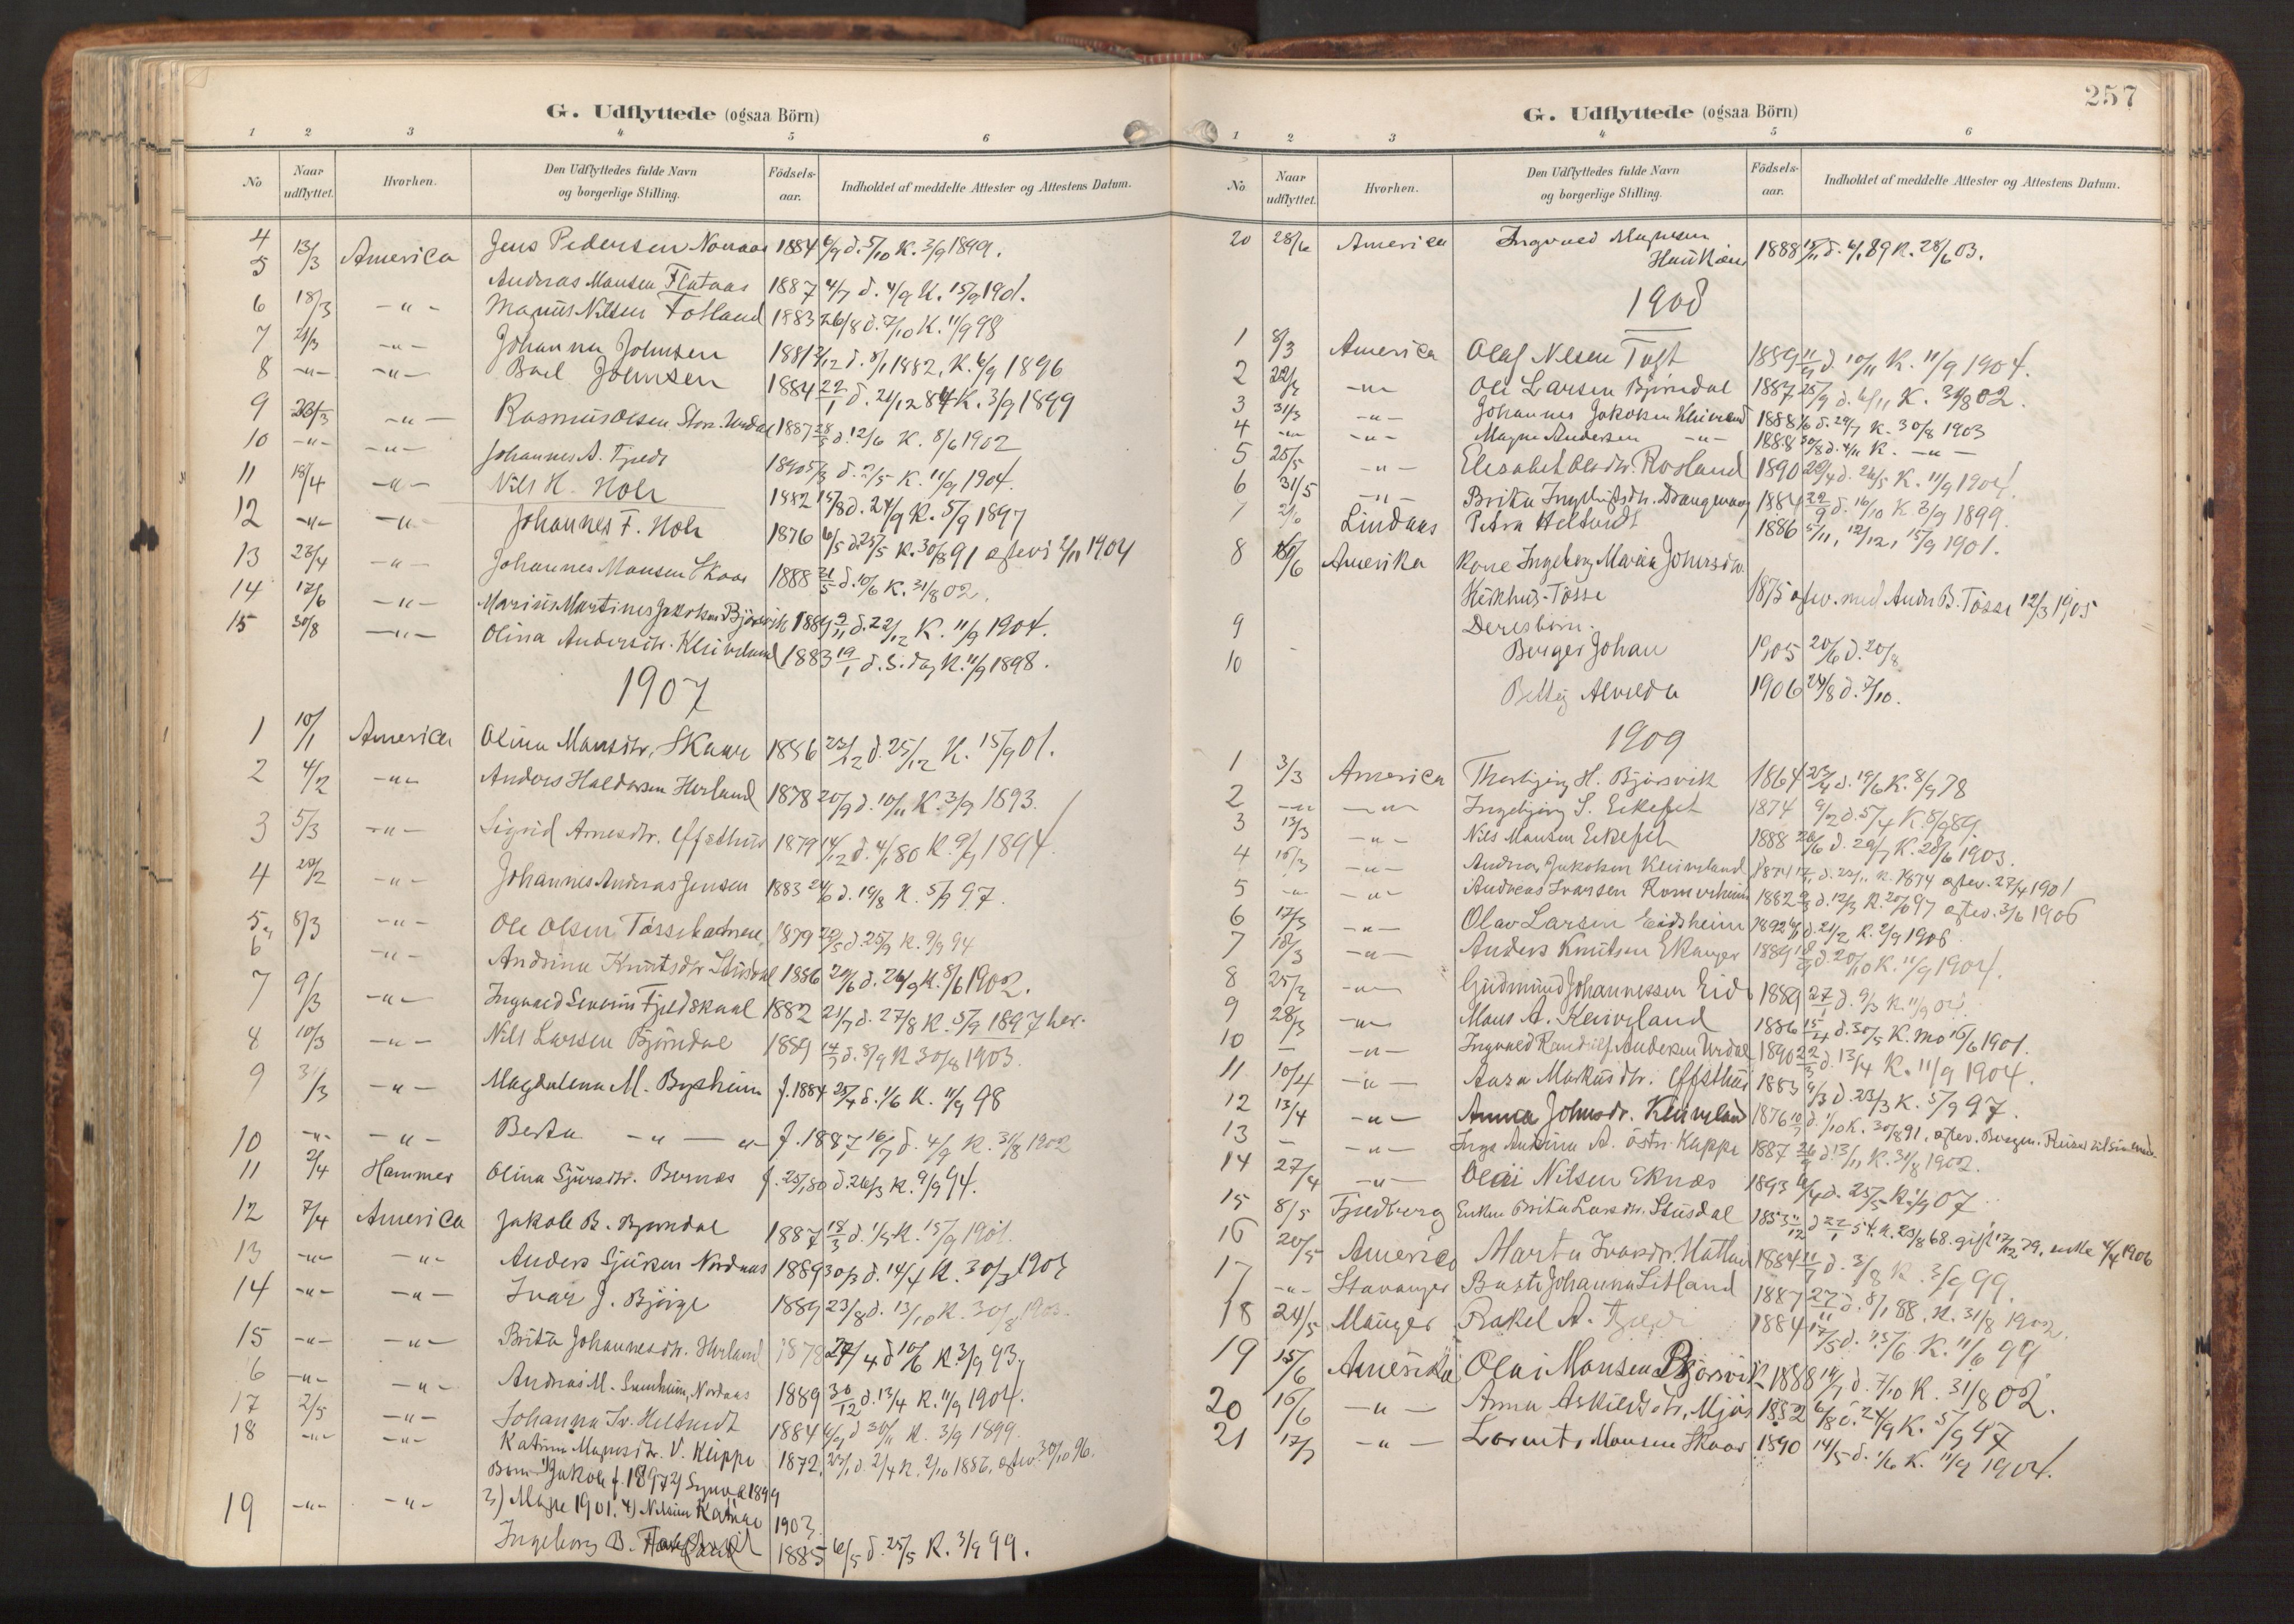 257
G. Udflyttede (ogsaa Börn)
1 2 3 4 5 6
No Naar udflyttet. Hvorhen. Den Udflyttedes fulde Navn og borgerlige Stilling. Födselsaar. Indholdet af meddelte Attester og Attestens Datum.
4 13/3 America Jens Pedersen Nonaas 1884 6/9 d. 5/10 K. 3/9 1899.
5 Andreas Monsen Flataas 1887 4/7 d. 4/9 K. 15/9 1901.
6 18/3 -"- Magnus Nilsen Totland 1883 26/8 d. 7/10 K. 11/9 98
7 21/3 -"- Johanna Johnsen 1881 d. 8/1 1882. K. 6/9 1896
8 -"- -"- Johnsen 1884 22/1 d. 21/12 84 K. 3/9 1899
9 23/3 -"- Rasmus Olsen Urdal 1887 28/5 d. 12/6 K. 8/6 1902
10 -"- -"- Johannes A. 1890 5/3 d. 2/5 K. 11/9 1904.
11 18/4 -"- Nils H. Hole 1882 15/8 d. 24/9 K. 5/9 1897
12 -"- -"- Johannes F. Hole 1876 6/5 d. 25/5 K. 30/8 91 1904
13 23/4 -"- Johannes Monsen Skaar 1888 21/5 d. 10/6 K. 31/8 02.
14 17/6 -"- Marius Martines Jakobsen Björsvik 1889 9/11 d. 22/12 K. 11/9 1904.
15 30/8 -"- Olina Andersdtr. Kleiveland 1883 19/1 d. s. dag K. 11/9 1898.
1907
1 10/1 America Olina Monsdtr. Skaar 1886 23/12 d. 25/12 K. 15/9 01.
2 4/2 -"- Anders Haldorsen Herland 1878 20/9 d. 10/11 K. 3/9 1893.
3 5/3 -"- Sigrid Arnesdtr. 1879 14/12 d. 4/1 80 K. 9/9 1894.
4 28/2 -"- Johannes Andreas Jensen 1883 24/6 d. 19/8 K. 5/9 97.
5 8/3 -"- Ole Olsen 1879 d. 25/9 K. 9/9 94
6 -"- Andrina Knutsdtr. Stusdal 1886 20/6 d. 26/9 K. 8/6 1902.
7 9/3 -"- Ingvald Severin Fjeldskaal 1882 21/7 d. 27/8 K. 5/9 1897 her.
8 10/3 -"- Nils Larsen Björndal 1889 14/7 d. 8/9 K 30/8 1903.
9 3/3 -"- Magdalena M. Bysheim f. 1884 25/4 d. 1/6 K. 11/9 98
10 -"- -"- Berta -"- -"- f. 1887 16/7 d. 4/9 K. 31/8 1902
11 2/4 Hammer Olina Sjursdtr. Bernes f. 25/1 80 d. 26/3 K. 9/9 94.
12 7/4 America Jakob B. Bjørndal 1887 18/3 d. 1/5 K. 15/9 1901.
13 -"- -"- Anders Sjursen Nordaas 1889 30/3 d. 14/4 K. 30/8 1903
14 -"- -"- Ivar J. Björge 1889 23/8 d. 13/10 K. 30/8 1903.
15 -"- -"- Brita Johannesdtr. Herland 1878 27/4 d 10/6 K 3/9 93,
6 -"- -"- Andreas M. Nordaas 1889 30/12 d. 13/4 K. 11/9 1904.
17 2/5 -"- Johanna Iv. Heltvedt 1884 6/9 d 30/11 K. 3/9 1899.
18 -"- -"- Katrina Magnesdtr. V. Kleppe 1872, 23/1 d. 2/4 K. 2/10 1886, 30/10 96.
Börn 1) Jakob f. 1897 2) Synva 1899
3) Magne 1901. 4) Nelsine Katrine 1903.
19 -"- -"- Ingeborg B. 1885 6/5 d. 25/5 K. 3/9 99.
G. Udflyttede (ogsaa Börn)
1 2 3 4 5 6
No Naar udflyttet. Hvorhen. Den Udflyttedes fulde Navn og borgerlige Stilling. Födselsaar. Indholdet af meddelte Attester og Attestens Datum.
20 28/6 America Ingvald Magnesen
Haukaas 1888 15/11 d. 6/1 89 K. 28/6 03.
1908
1 8/3 America Olaf Nilsen Toft 1889 11/9 d. 10/11 K. 11/9 1904.
2 22/3 -"- Ole Larsen Bjørndal 1887 25/9 d. 6/11 K. 31/8 02.
3 31/3 -"- Johannes Jakobsen Kleiveland 1888 1/6 d. 29/7 K. 30/8 1903
4 -"- -"- Magne Andersen -"- 1888 30/8 d. 4/11 K. -"-
5 25/5 -"- Elisabet Olsdtr. Rosland 1890 20/4 d. 26/5 K. 11/9 1904.
6 31/5 -"- Brita Drangevaag 1884 22/9 d. 16/10 K 3/9 1899.
7 2/6 Lindaas Petra Heltvedt 1886 5/11, 12/12, 15/9 1901.
8 18/6 Amerika Kone Ingeborg Maria Johnsdtr.
Kirkhus-Tosse 1875 med Andr B. Tosse 12/3 1905
Deres børn.
9 Berger Johan 1905 20/6 d. 20/8
10 Betsy Alvilda 1906 24/8 d. 7/10.
1909
1 3/3 America Thorbjörg H. Bjørsvik 1864 23/4 d. 19/6 K. 8/9 78
2 -"- -"- Ingebjörg S. Eikefet 1874 9/2 d. 5/4 K 8/9 89.
3 13/3 -"- Nils Monsen Eikefet 1888 26/6 d. 29/7 K. 28/6 1903.
4 15/3 -"- Andrea Jakobsen Kleiveland 1874 d. 22/11 K. 1874 27/4 1901
5 -"- -"- Andreas Ivarsen Romarheim 1882 d. 12/3 K. 20/6 97 3/6 1906
6 17/3 -"- Olav Larsen Eidsheim 1892 d. 21/2 K. 2/9 1906.
7 18/3 -"- Anders Knutsen Ekanger 1889 18/9 d. 20/10 K. 11/9 1904.
8 25/3 -"- Gudmund Johannessen Eide 1889 27/1 d. 9/3 K. 11/9 04.
9 28/3 -"- Mons A. Kleiveland 1886 15/4 d. 30/5 K. Mo 16/6 1901.
10 — -"- Ingvald Randulf Andersen Urdal 1890 22/3 d 13/4 K. 11/9 1904.
11 10/4 -"- Aasa Markusdtr. 1883 9/3 d. 23/3 K. 5/9 97.
12 13/4 -"- Anna Johnsdtr. Kleiveland 1876 d. 1/10 K. 30/8 91, Bergen. Reiser
13 — -"- Inga Andrina A. östre Kleppe 1887 26/9 d. 13/11 K. 31/8 1902.
14 27/4 -"- Olai Nilsen Eknæs 1893 6/4 d. 25/5 K. 1/9 07.
15 8/5 Fjedberg Enken Brita Larsdtr. Stusdal 1853 11/12 d 22/1 54. K. 23/8 68. gift 17/12 79, enke 4/4 1906
16 20/5 America Marta Ivarsdtr. Hatland 1884 11/7 d. 3/8 K. 3/9 99.
17 -"- Stavanger Berte Johanna Litland 1887 27/11 d. 8/1 88. K. 31/8 1902.
18 24/5 Manger Rakel A. 1884 17/5 d. 15/6 K. 11/6 99
19 15/6 Amerika Olai Monsen Bjørsvik 1888 14/7 d. 7/10 K. 31/8 02.
20 16/6 -"- Anna Askildsdtr. Mjøs 1882 6/8 d. 24/9 K. 5/9 97
21 17/7 -"- Laurits Monsen Skaar 1890 14/5 d. 1/6 K. 11/9 1904.